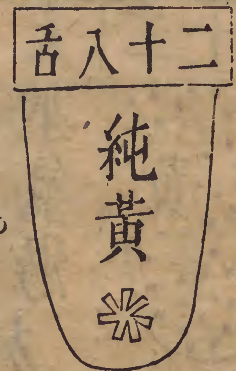 二十八舌
純黃